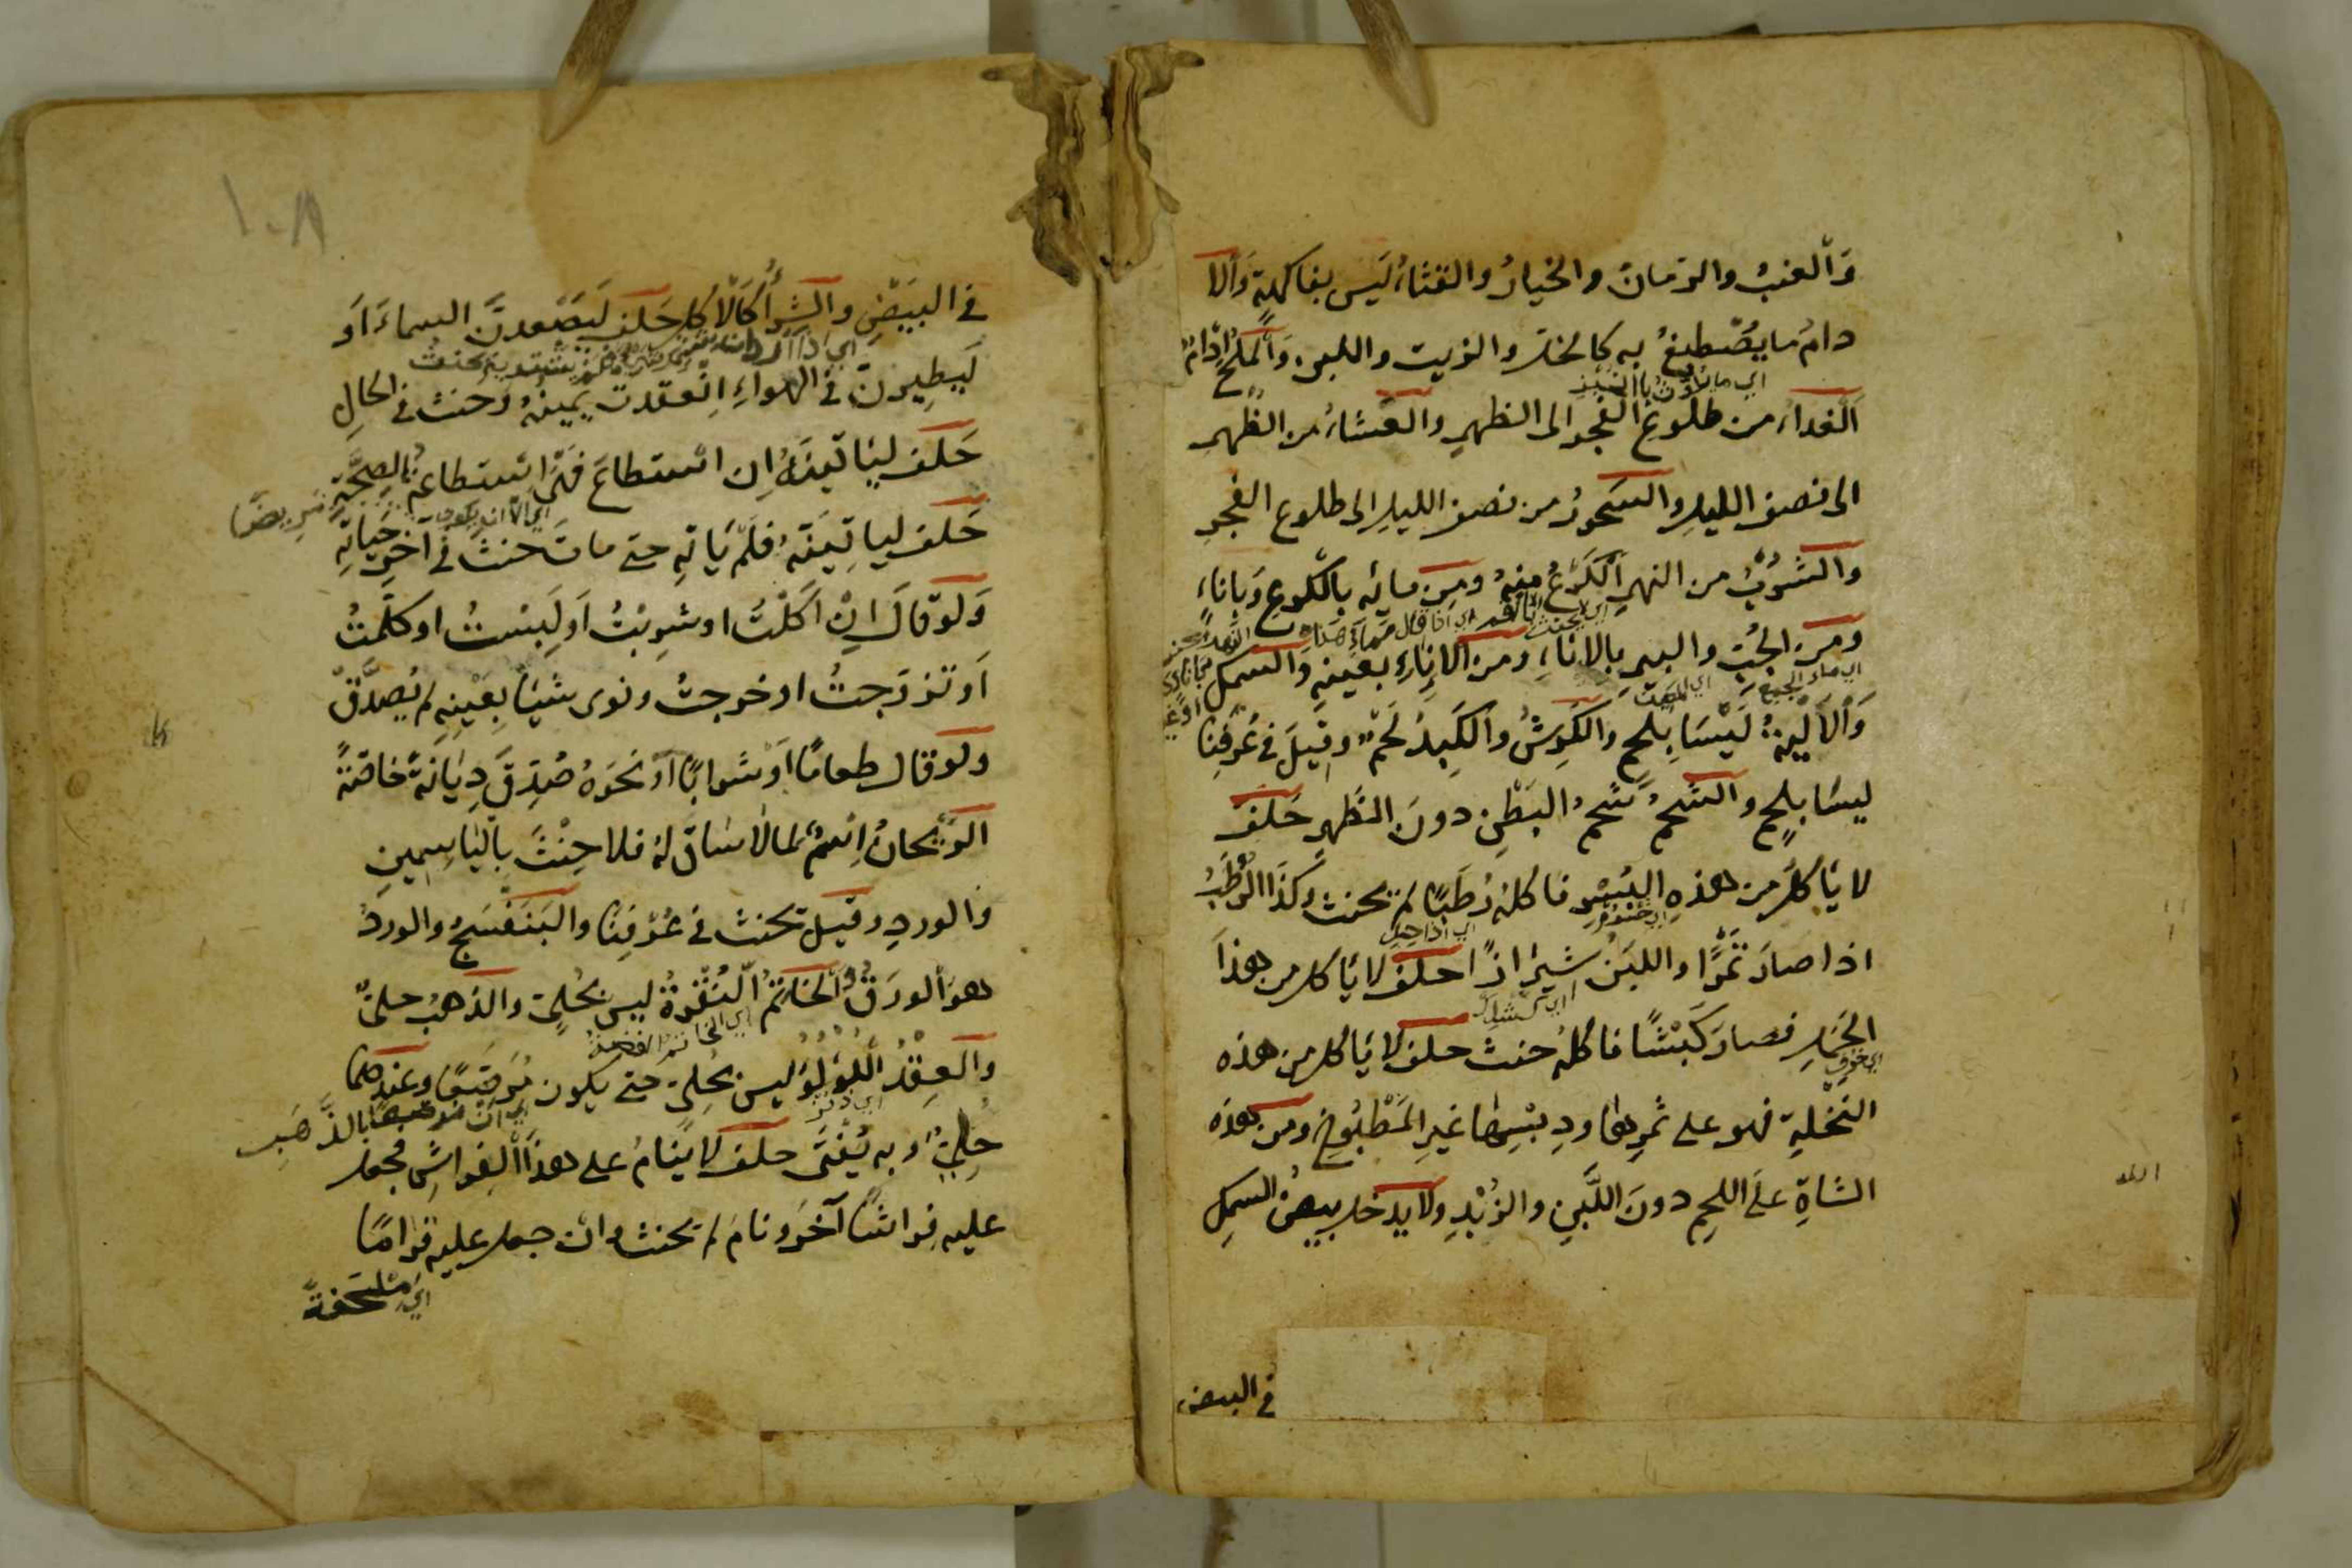 وَالعنبُ والرّمانُ والخيارُ والقثاءُ لَيس بفاكهةٍ وَالا
دامُ ما يُصْطبغُ به كالخلّ والزيت واللبن وَالملحُ اِدَامٌ
اي ما
الغداءُ من طلوعِ الفجر الى الظهرِ والعَشاءُ من الظُهر
الى نصف الليلِ والسَحورُ من نصف الليل الى طلوع الفجرِ
والشربُ من النهرِ اَلكَرْعُ مِنهُ ومِن مائِه بالكَرعِ وَباِناءٍ
ومِنَ الجُبّ والبيرِ بِالاِناءِ ومن الاِناءِ بعينِهِ وَالسَّمكُ
وَالاَلْيةُ لَيْسَا بِلحمٍ والكَرِشُ والكَبِدُ لَحْمٌ وقيلَ في عُرْفِنا
ليسَا بلحمٍ والشحمُ شحمُ البَطْنِ دونَ الظَهرِ حَلَفَ
لا يأكلُ من هذهِ البُسْرِ فاكلهُ رُطَبًا لم يحنث وكَذَا الرُّطَبُ
اذا صارَ تَمْرًا واللبَنُ شِيرازًا حلَفَ لا يأكل من هذا
الحَمَلِ فصارَ كَبْشًا فاكلهُ حنث حلفَ لا يأكل من هذه
اي خروف
النَخْلةِ فهو على ثمرِها ودِبْسِها غيرِ المَطْبُوخِ ومن هذه
الشاةِ على اللحمِ دونَ اللَّبَنِ والزُبْدِ ولا يدخل بيضُ السمكِ
في البيض
١٠٨
في البَيضِ والشِّراءُ كَالْاكل حَلَفَ لَيَصْعدنَّ السماءَ اَو
لَيطِيرنّ في الهواءِ اِنْعقدت يَمِينُهُ وحنث في الحالِ
حَلَفَ ليَاْتِيَنَّهُ اِن استطاعَ فهي استطاعةُ الصحَّةِ
اي الا ان يكون مريضًا
حَلَفَ لياْتِيَنَّهُ فلم يَاْتِهِ حتى ماتَ حنث في آخرِ حَياتِهِ
وَلو قالَ اِنْ اَكَلْتُ او شرِبْتُ اَو لَبِسْتُ او كلَّمتُ
اَو تزوّجتُ او خرجتُ ونوى شيئًا بعَيْنِهِ لم يُصدَّقْ
ولو قال طعامًا اَو شرابًا اَو نحوَهُ صُدِّقَ دِيَانةً خاصّةً
الرَّيْحانُ اِسْمٌ لما لا ساقَ لهُ فلا حِنْثَ باليَاسِمينِ
والوردِ وقيل يحنث في عُرْفِنا والبَنَفْسَجُ والوردُ
هو الورَقُ والخاتمُ النُقْرةُ ليس بحُلِيّ والذهبُ حليٌّ
اي الخاتم الفضة
والعِقْدُ اللُؤْلُؤُ ليس بحُلِيّ حتى يكون مُرَصَّعًا وعندهما
بالذَّهَبِ
حُلِيٌّ وبه يُفْتَى حلف لا يَنامُ على هذا الفِراشِ فجعل
عليه فِراشًا آخَرَ ونامَ لم يحنث وان جعل عليه قِرامًا
اي مِلْحَفةً